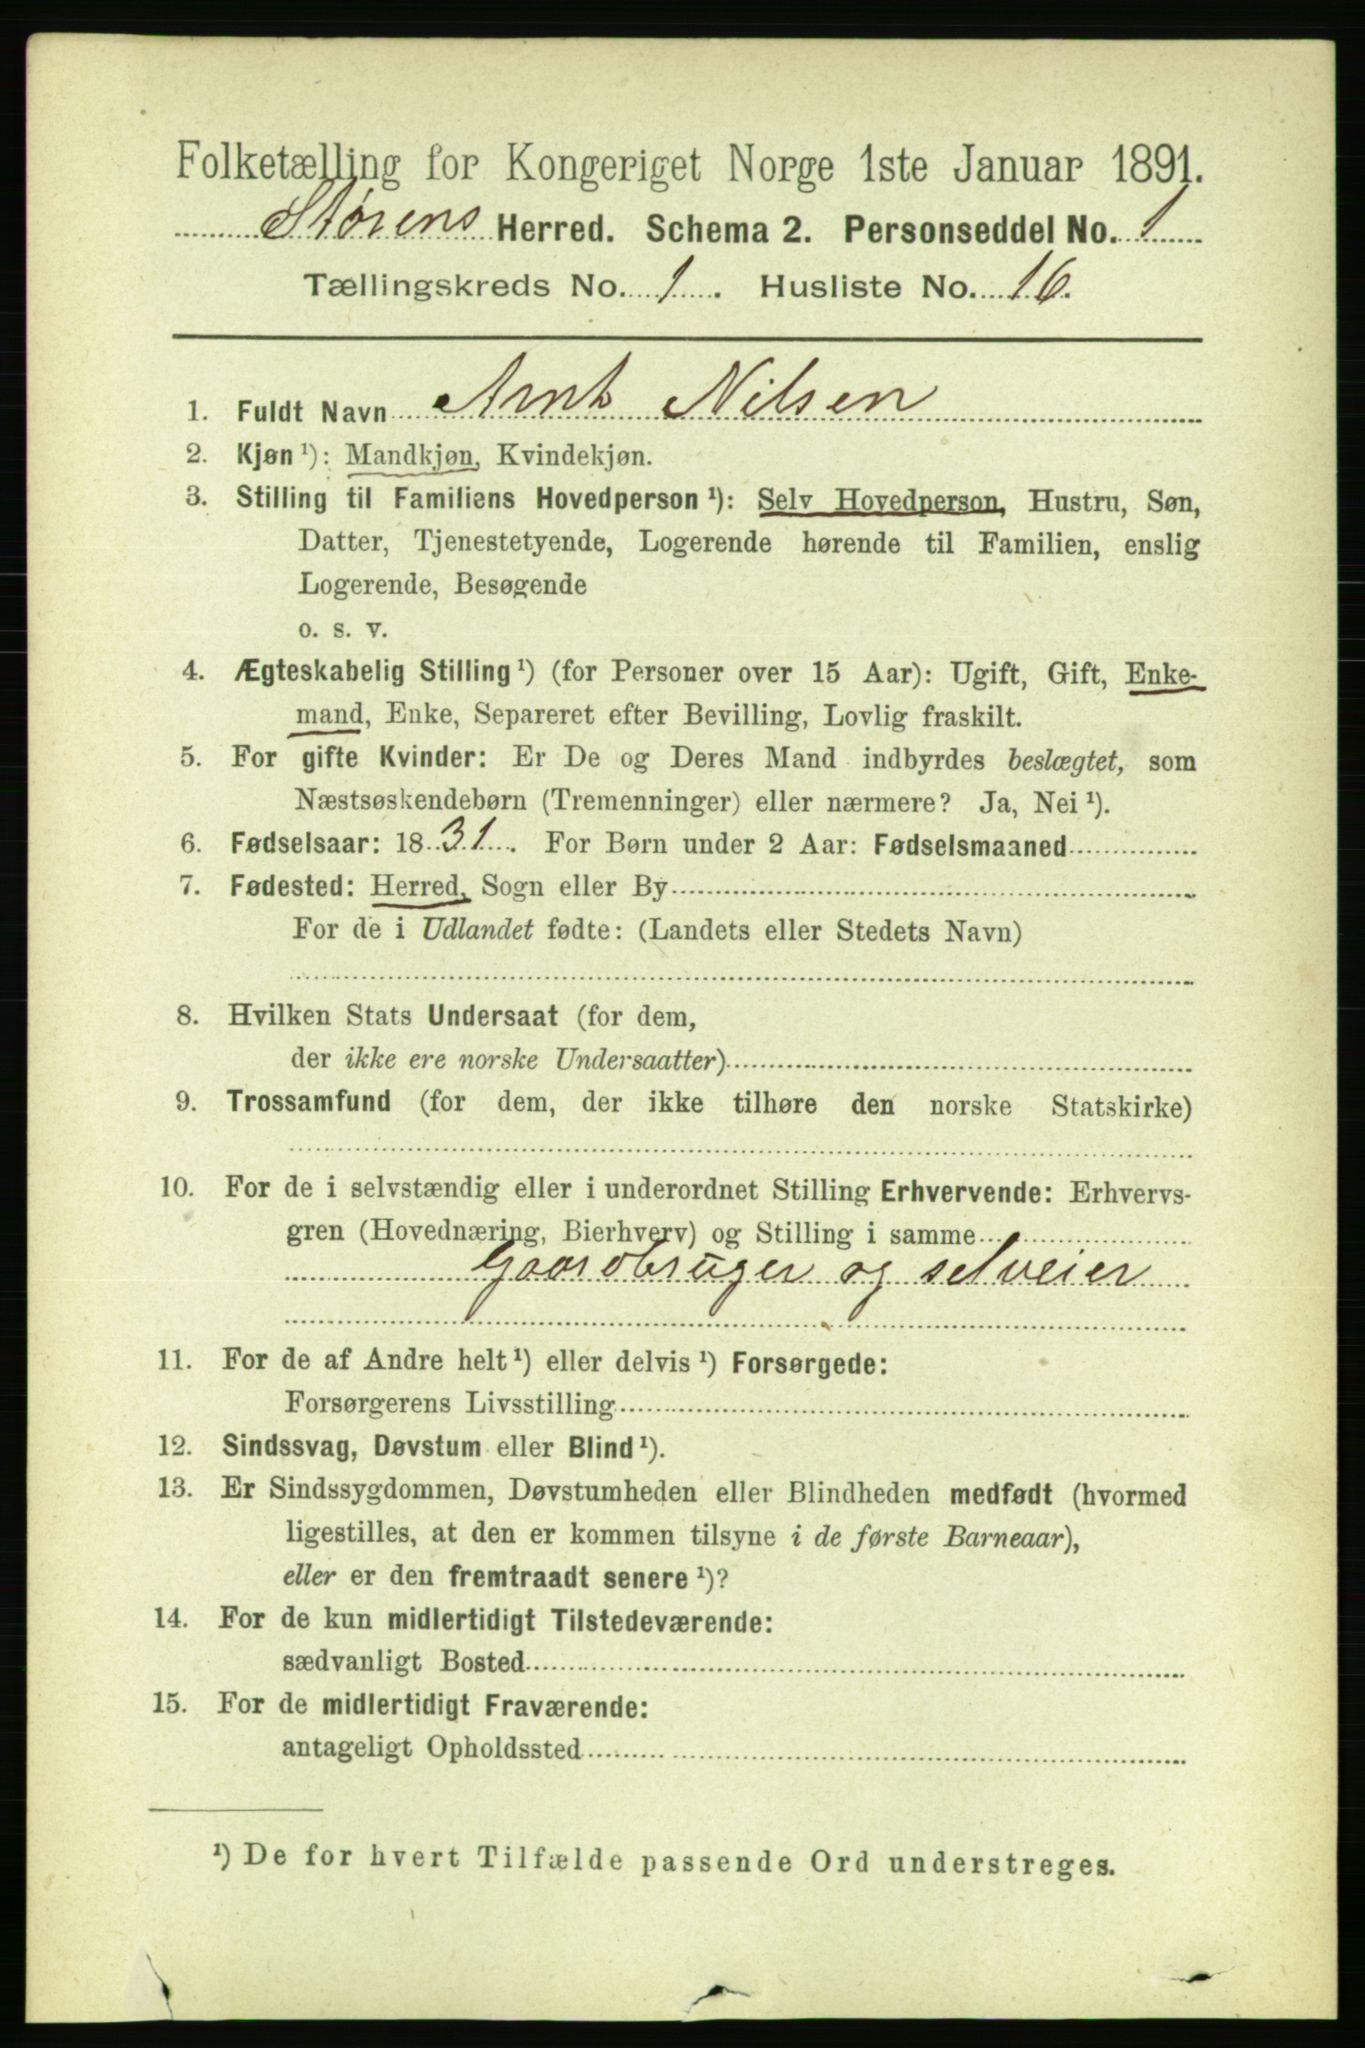 Folketælling for Kongeriget Norge 1ste Januar 1891.
Størens Herred. Schema 2. Personseddel No. 1
Tællingskreds No. 1. Husliste No. 16.
1. Fuldt Navn Arnt Nilsen
2. Kjøn ¹): Mandkjøn, Kvindekjøn.
3. Stilling til Familiens Hovedperson ¹): Selv Hovedperson, Hustru, Søn,
Datter, Tjenestetyende, Logerende hørende til Familien, enslig
Logerende, Besøgende
o. s. v.
4. Ægteskabelig Stilling ¹) (for Personer over 15 Aar): Ugift, Gift, Enke-
mand, Enke, Separeret efter Bevilling, Lovlig fraskilt.
5. For gifte Kvinder: Er De og Deres Mand indbyrdes beslægtet, som
Næstsøskendebørn (Tremenninger) eller nærmere? Ja, Nei ¹).
6. Fødselsaar: 1831. For Børn under 2 Aar: Fødselsmaaned
7. Fødested: Herred, Sogn eller By
For de i Udlandet fødte: (Landets eller Stedets Navn)
8. Hvilken Stats Undersaat (for dem,
der ikke ere norske Undersaatter)
9. Trossamfund (for dem, der ikke tilhøre den norske Statskirke)
10. For de i selvstændig eller i underordnet Stilling Erhvervende: Erhvervs-
gren (Hovednæring, Bierhverv) og Stilling i samme
Gaardbruger og selveier
11. For de af Andre helt ¹) eller delvis ¹) Forsørgede:
Forsørgerens Livsstilling
12. Sindssvag, Døvstum eller Blind ¹).
13. Er Sindssygdommen, Døvstumheden eller Blindheden medfødt (hvormed
ligestilles, at den er kommen tilsyne i de første Barneaar),
eller er den fremtraadt senere ¹)?
14. For de kun midlertidigt Tilstedeværende:
sædvanligt Bosted
15. For de midlertidigt Fraværende:
antageligt Opholdssted
¹) De for hvert Tilfælde passende Ord understreges.